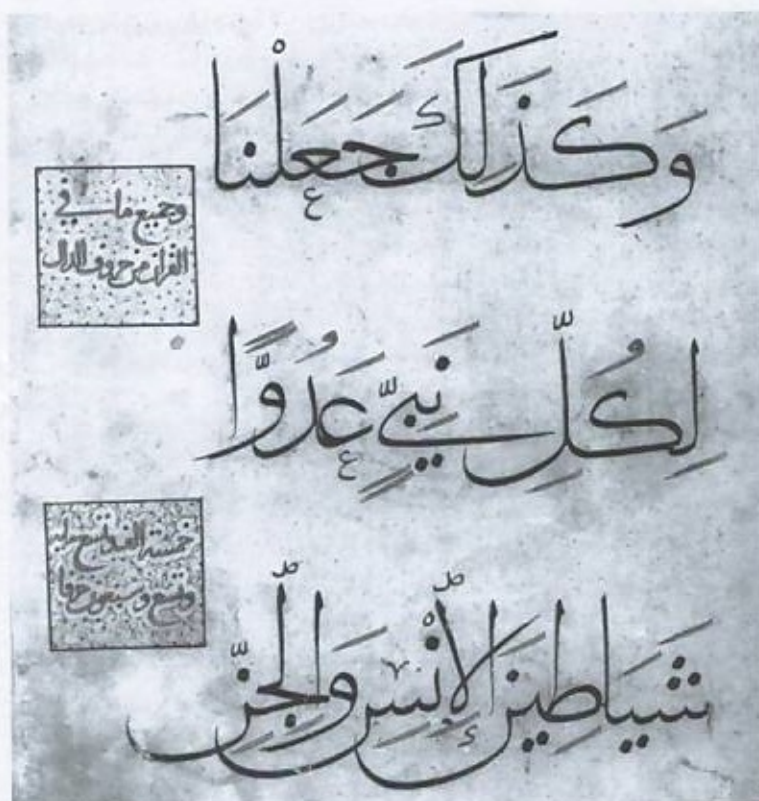 وَكَذَلِكَ جَعَلْنَا
وجميع ما في
القران من حروف الدال
لِكُلِّ نَبِيٍّ عَدُوًّا
خمسة الف وتسع مايه
وتسع وسبعون حرفا
شَيَاطِينَ الْاِنْسِ وَالْجِنِّ